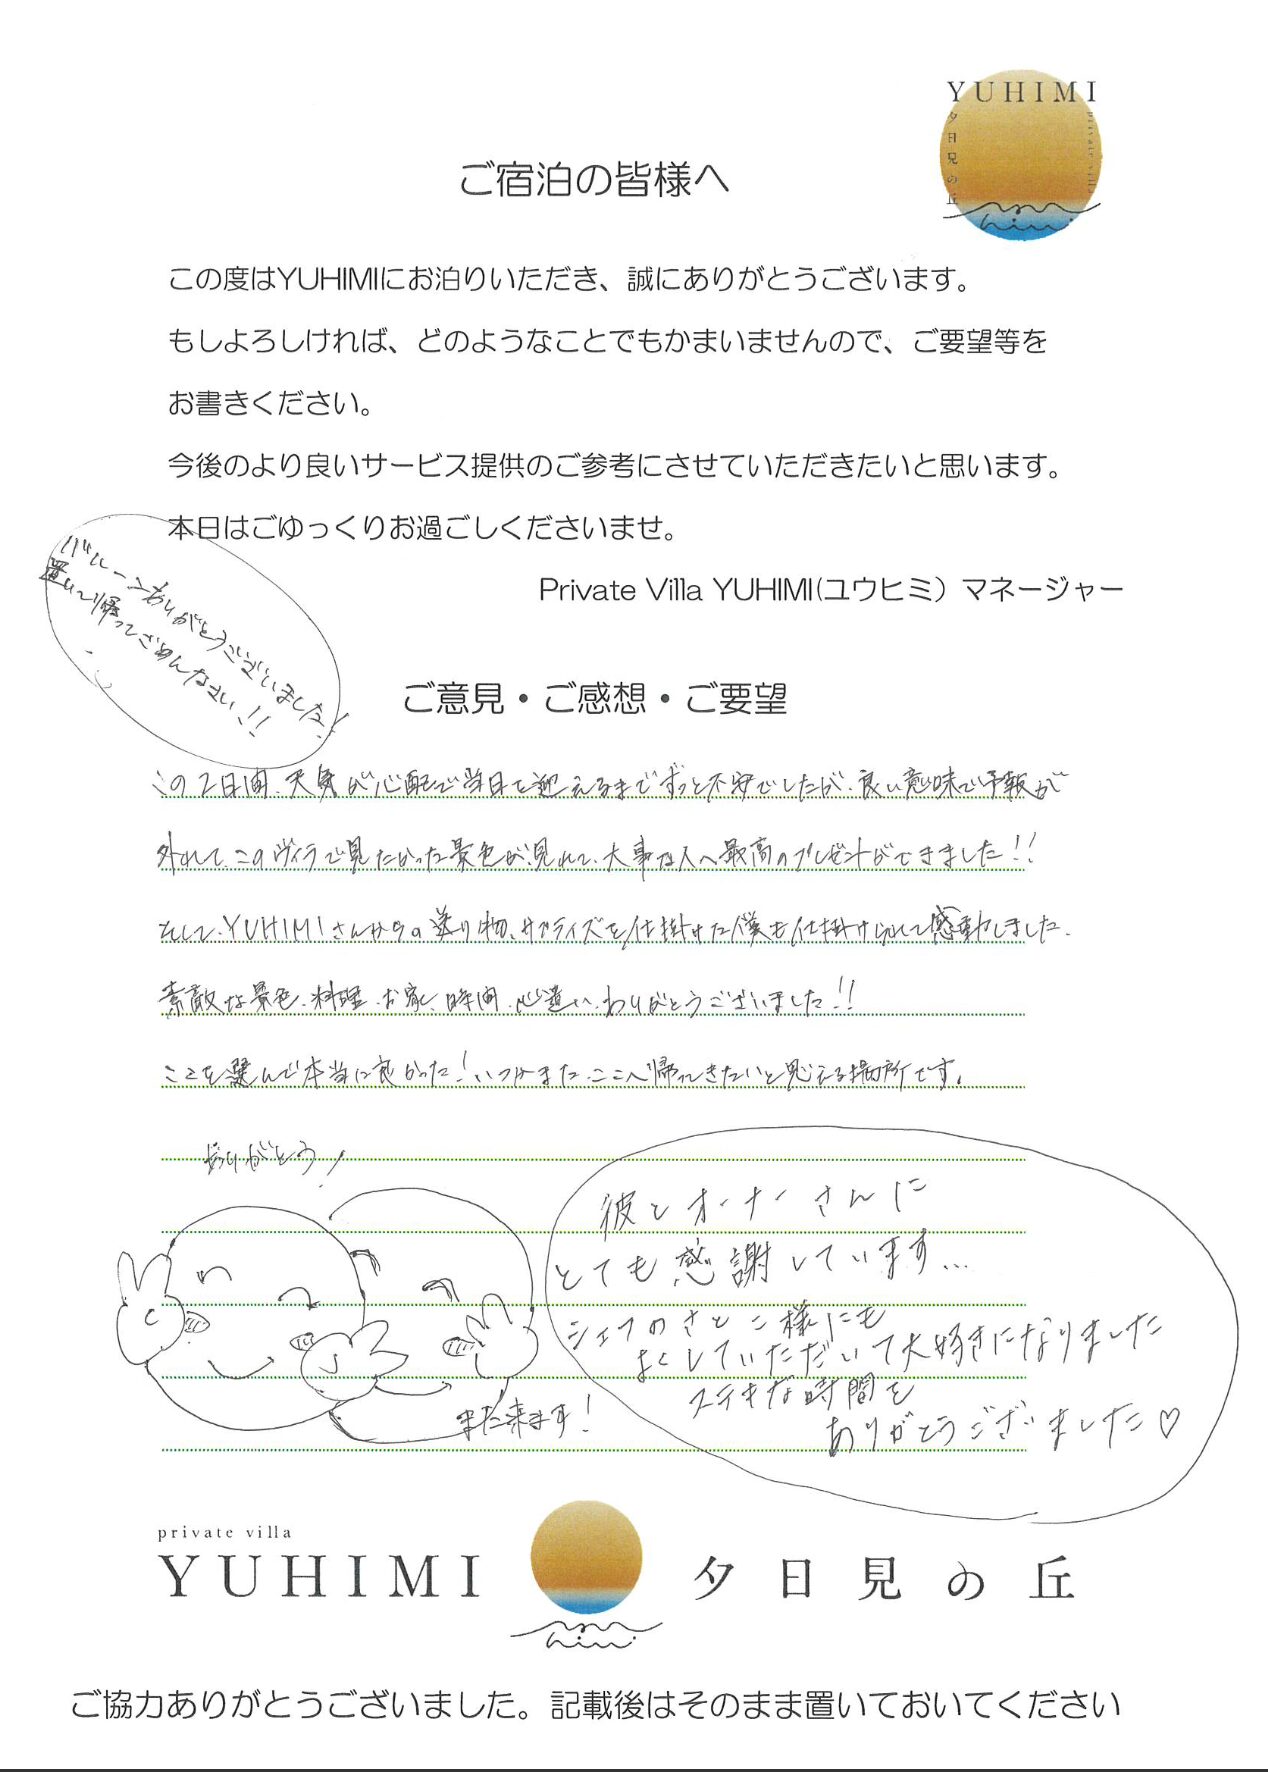 YUHIMI
夕日見の丘
private villa
ご宿泊の皆様へ
この度はYUHIMIにお泊りいただき、誠にありがとうございます。
もしよろしければ、どのようなことでもかまいませんので、ご要望等を
お書きください。
今後のより良いサービス提供のご参考にさせていただきたいと思います。
本日はごゆっくりお過ごしくださいませ。
Private Villa YUHIMI(ユウヒミ）マネージャー
バルーンありがとうございました!
置いて帰ってごめんなさい!!
ご意見・ご感想・ご要望
この2日間、天気が心配で当日を迎えるまでずっと不安でしたが、良い意味で予報が
外れて、このヴィラで見たかった景色が見れて、大事な人へ最高のプレゼントができました!!
そして、YUHIMIさんからの送り物、サプライズを仕掛けた僕も仕掛けられて感動しました、
素敵な景色、料理、お家、時間、心遣い、ありがとうございました!!
ここを選んで本当に良かった!いつかまた、ここへ帰ってきたいと思える場所です。
ありがとう!
彼とオーナーさんに
とても感謝しています...
シェフのさとこ様にも
よくしていただいて大好きになりました
ステキな時間を
ありがとうございました♡
また来ます!
private villa
YUHIMI
夕日見の丘
ご協力ありがとうございました。記載後はそのまま置いておいてください